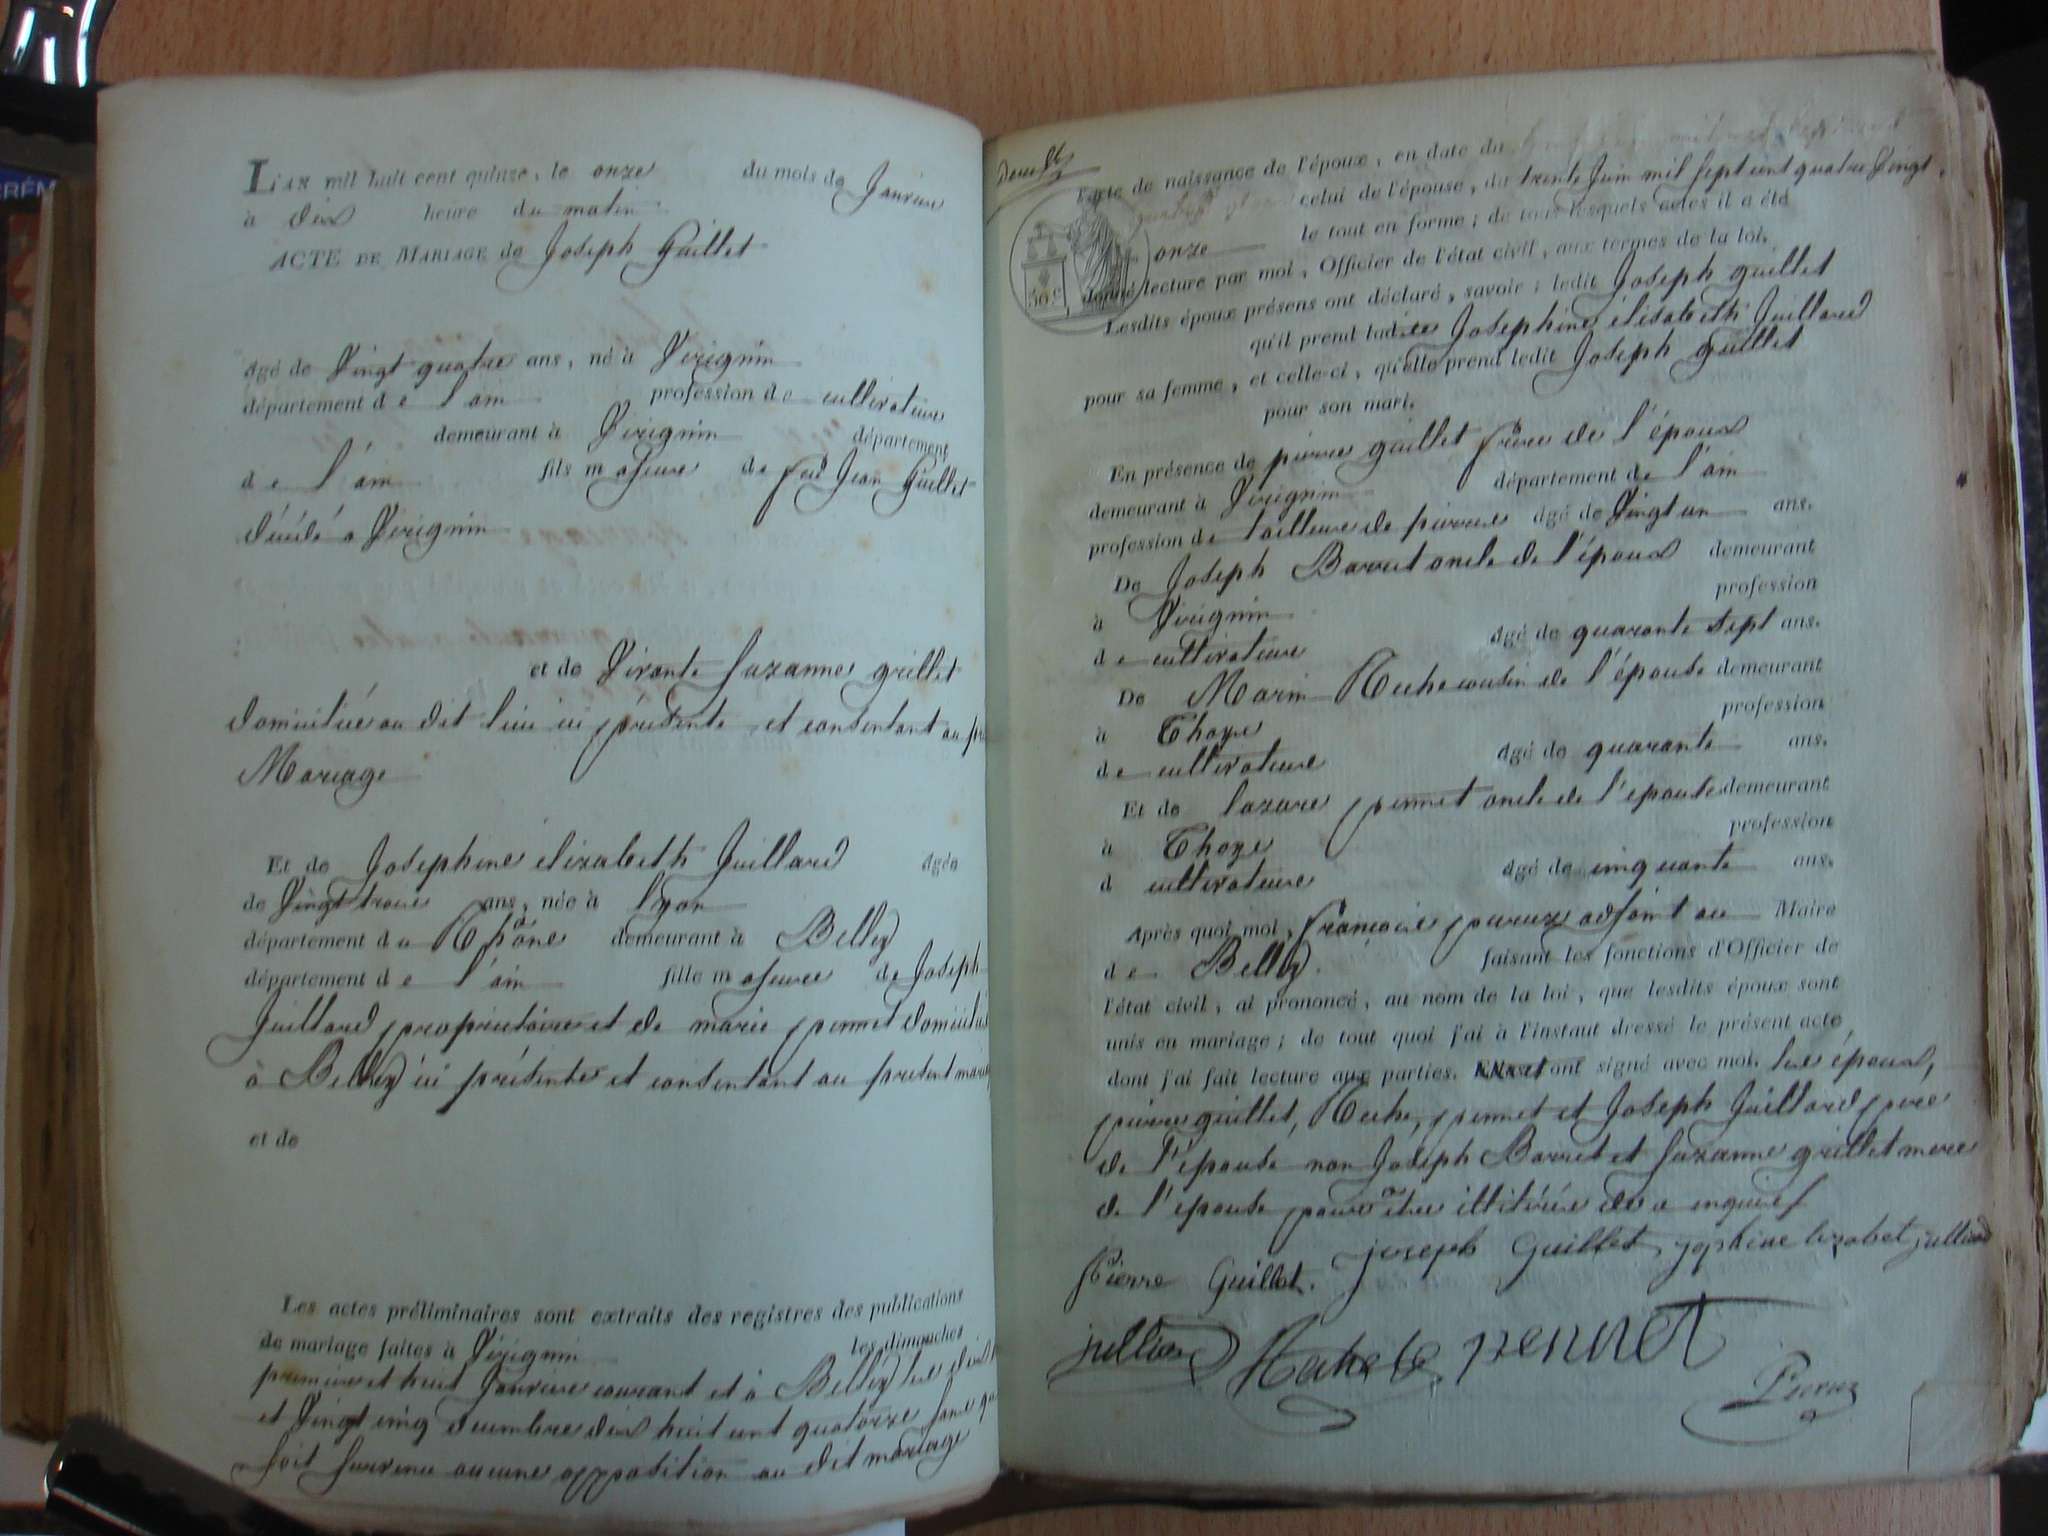 L'AN mil huit cent quinze, le onze du mois de Janvier
à dix heure du matin
ACTE DE MARIAGE de Joseph Guillet
âgé de Vingt quatre ans, né à Virignin
département de l'ain profession de cultivateur
demeurant à Virignin département
de l'ain fils majeur de feu Jean Guillet
décédé a Virignin
et de Vivante Suzanne grillet
domiciliée au dit lieu ici présente et consentant au
Mariage
Et de Josephine elizabeth Juillard âgée
de Vingt trois ans, née à lyon
département du Rhône demeurant à Belley
département de l'ain fille majeure de Joseph
Juillard propriétaire et de marie pennet domiciliés
à Belley ici présents et consentant au présent
et de
Les actes préliminaires sont extraits des registres des publications
de mariage faites à Virignin les dimanches
premier et huit Janvier courant et à Belley les
et Vingt cinq decembre dix huit cent quatorze sans
soit survenu aucune opposition au dit mariage
CRÉM
l'acte de naissance de l'époux, en date du
celui de l'épouse, du trente Juin mil sept cent quatre Vingt
onze le tout en forme; de tous lesquels actes il a été
donné lecture par moi, Officier de l'état civil, aux termes de la loi.
30.c
Lesdits époux présens ont déclaré, savoir: ledit Joseph guillet
qu'il prend ladite Josephine élisabeth Juillard
pour sa femme, et celle-ci, qu'elle prend ledit Joseph guillet
pour son mari.
En présence de pierre guillet frère de l'époux
demeurant à Virignin département de l'ain
profession de tailleur de pierre âgé de Vingt un ans.
De Joseph Barret oncle de l'époux demeurant
à Virignin profession
de cultivateur âgé de quarante sept ans.
De Marin Roche cousin de l'épouse demeurant
à Thoye profession
de cultivateur âgé de quarante ans.
Et de lazare pennet oncle de l'epouse demeurant
à Thoye profession
d cultivateur âgé de cinquante ans.
Après quoi moi, françois peruz adjoint au Maire
de Belley faisant les fonctions d'Officier de
l'état civil, ai prononcé, au nom de la loi, que lesdits époux sont
unis en mariage; de tout quoi j'ai à l'instant dressé le présent acte
dont j'ai fait lecture aux parties. ont signé avec moi. les époux,
pierre guillet, Roche, pennet et Joseph Juillard pere
de l'epouse non Joseph Barret et Suzanne grillet mere
de l'epouse pour être illitérés de ce enquis
Pierre Guillet. joseph Guillet
julliard pennet
Peruz